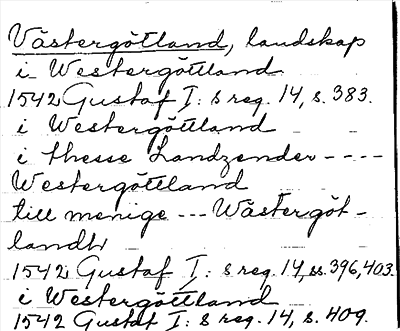 Västergötland, landskap
i Westergöttland
1542 Gustaf I:s reg. 14, s. 383.
i Westergöttland
i thesse Landzender ----
Westergöttland
till menige --- Wästergöt-
landh
1542 Gustaf I:s reg. 14, ss. 396, 403.
i Westergöttland
1542 Gustaf I:s reg. 14, s. 409.